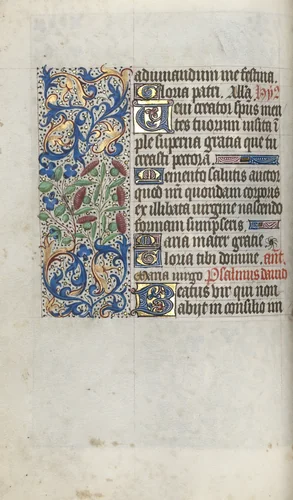 adiuuandum me festina.
Gloria patri. Alla. hym̄
Ueni creator sp̄us men
tes tuorum uisita im
ple superna gratia que tu
creasti pectora.
Memento salutis auctor
quod n̄ri quondam corporis
ex illibata uirgine nascendo
formam sumpseris
Maria mater gratie
Gloria tibi domine. ant.
Maria uirgo Psalmus dauid
Beatus uir qui non
abijt in consilio im